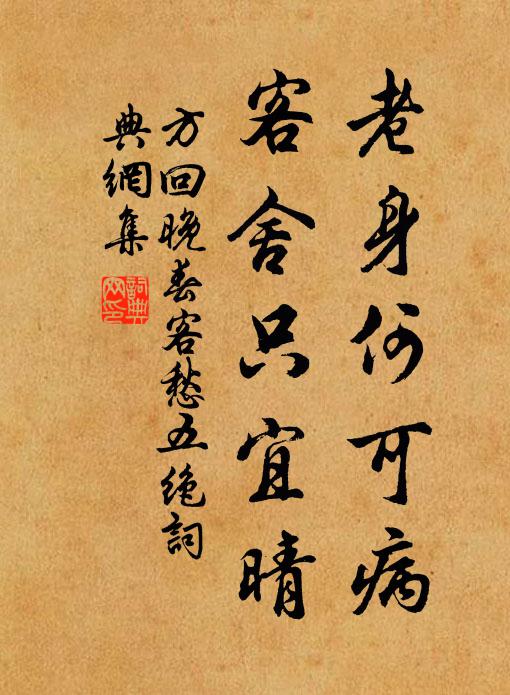 老身何可病
客舍只宜晴
方回晚春客愁五绝詞
典網集
詞典网印